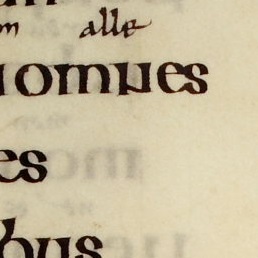 alle
omnes
es
bus